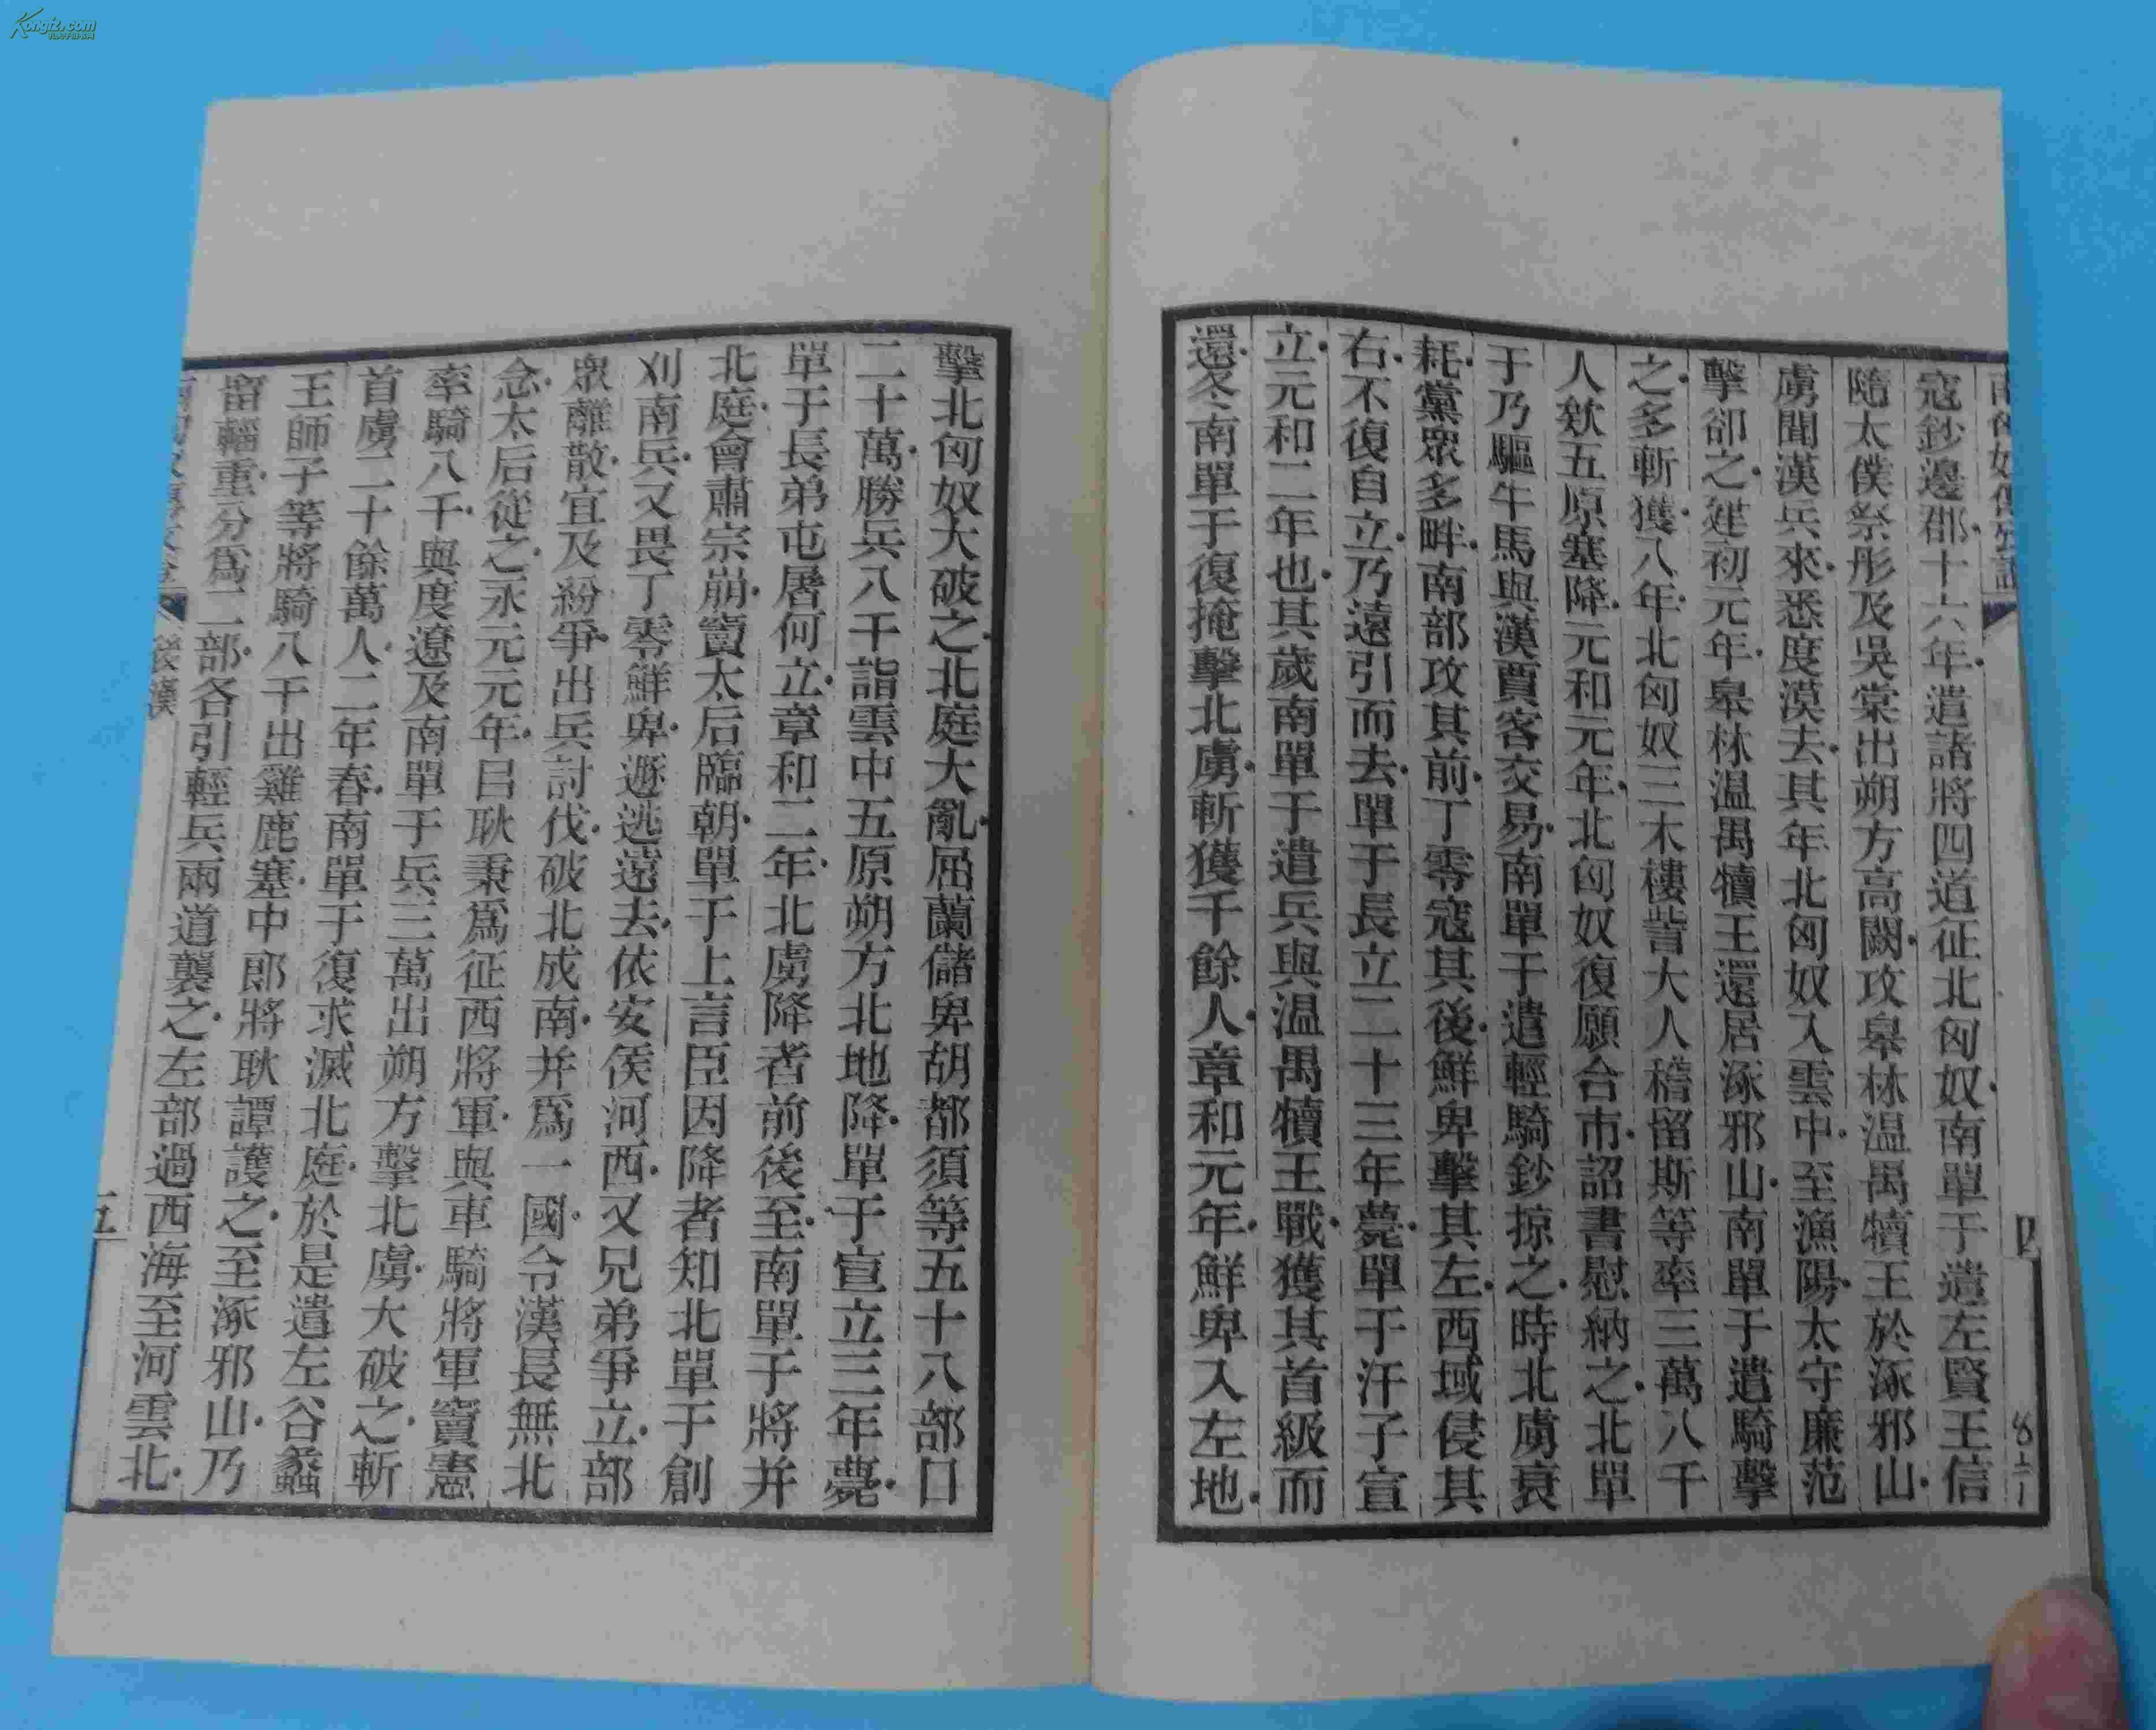 Kongfz.com
寇鈔邊郡十六年遣諸將四道征北匈奴南單于遣左賢王信
隨太僕祭彤及吳棠出朔方高闕攻皋林温禺犢王於涿邪山
虜聞漢兵來悉度漠去其年北匈奴入雲中至漁陽太守廉范
擊卻之建初元年皋林温禺犢王還居涿邪山南單于遣騎擊
之多斬獲八年北匈奴三木樓訾大人稽留斯等率三萬八千
人欵五原塞降元和元年北匈奴復願合市詔書慰納之北單
于乃驅牛馬與漢賈客交易南單于遣輕騎鈔掠之時北虜衰
耗黨眾多畔南部攻其前丁零寇其後鮮卑擊其左西域侵其
右不復自立乃遠引而去單于長立二十三年薨單于汗子宣
立元和二年也其歲南單于遣兵與温禺犢王戰獲其首級而
還冬南單于復掩擊北虜斬獲千餘人章和元年鮮卑入左地
擊北匈奴大破之北庭大亂屈蘭儲卑胡都須等五十八部口
二十萬勝兵八千詣雲中五原朔方北地降單于宣立三年薨
單于長弟屯屠何立章和二年北虜降者前後至南單于將并
北庭會肅宗崩竇太后臨朝單于上言臣因降者知北單于創
刈南兵又畏丁零鮮卑遯逃遠去依安侯河西又兄弟爭立部
眾離散宜及紛爭出兵討伐破北成南并爲一國令漢長無北
念太后從之永元元年㠯耿秉爲征西將軍與車騎將軍竇憲
率騎八千與度遼及南單于兵三萬出朔方擊北虜大破之斬
首虜二十餘萬人二年春南單于復求滅北庭於是遣左谷蠡
王師子等將騎八千出雞鹿塞中郎將耿譚護之至涿邪山乃
留輜重分爲二部各引輕兵兩道襲之左部過西海至河雲北
後漢
五